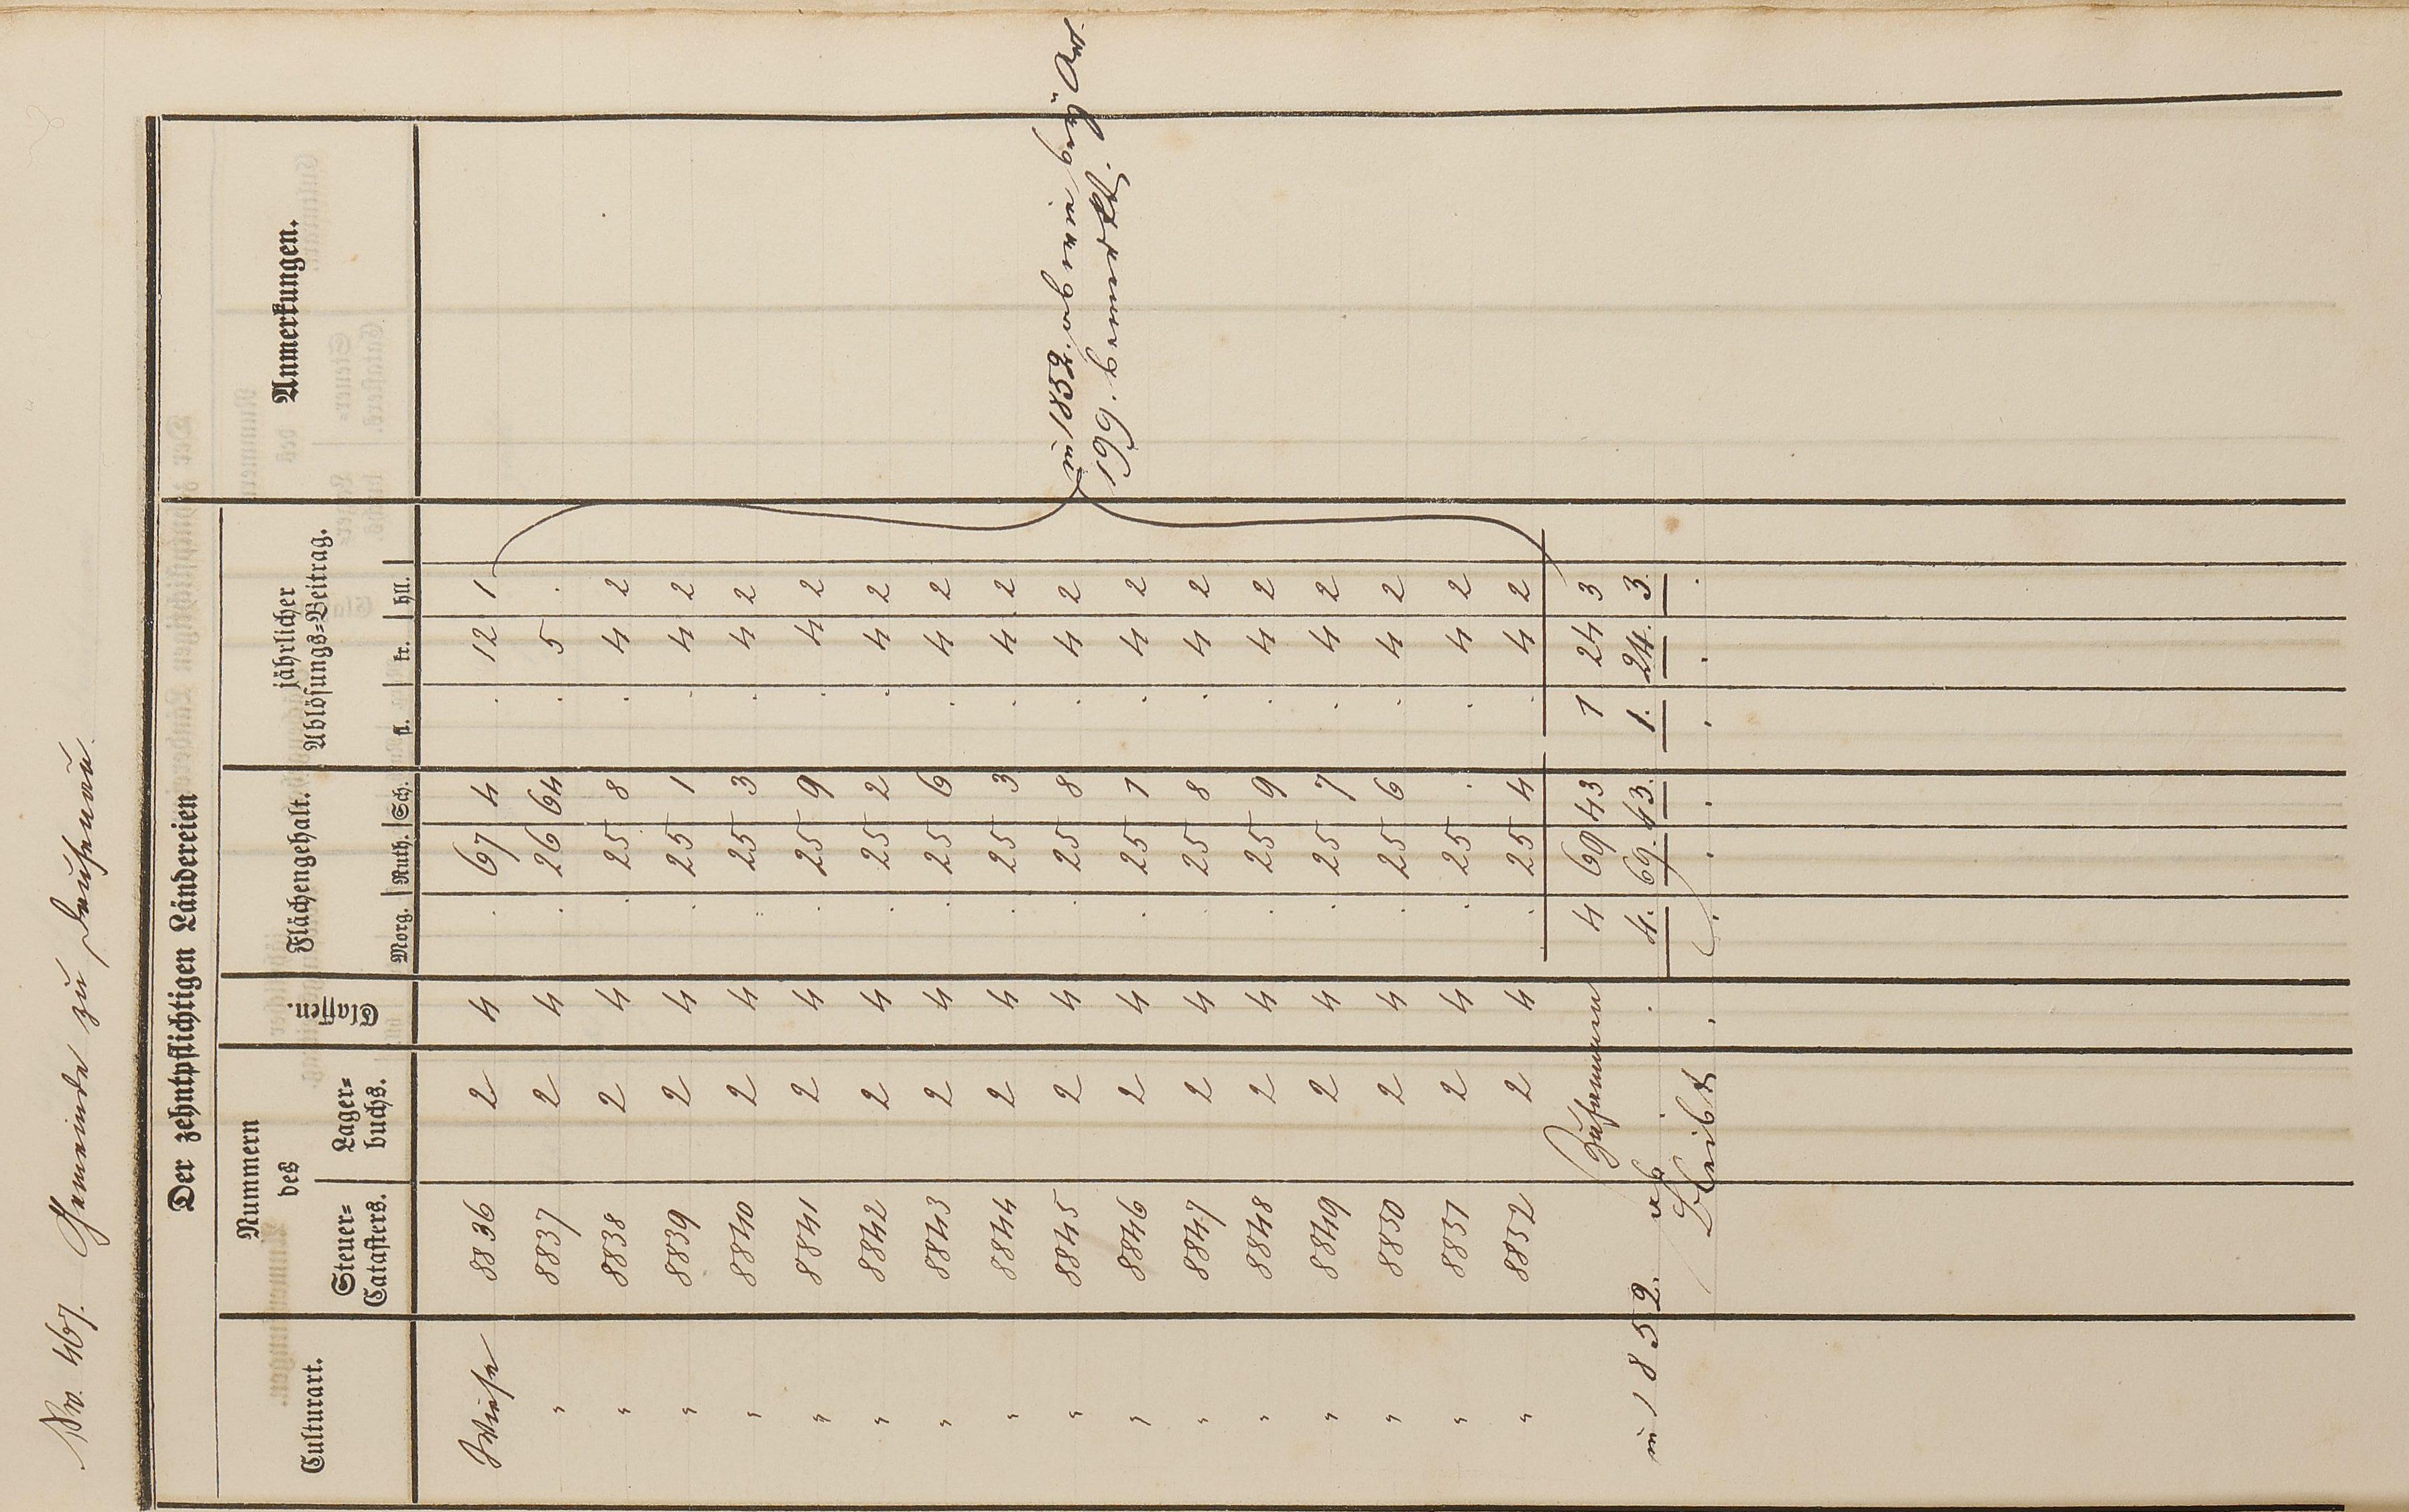 No. 467. Gemeinde zu Dausenau.
Der zehntpflichtigen Ländereien
Culturart. Nummern des Classen. Flächengehalt. jährlicher Ablösungs=Beitrag. Anmerkungen.
Steuer= Catasters. Lager= buchs. Morg. Ruth. Sch. fl. kr. hll.
Wiese 8836 2 4 . 67 4 . 12 1
" 8837 2 4 . 26 64 . 5 .
" 8838 2 4 . 25 8 . 4 2
" 8839 2 4 . 25 1 . 4 2
" 8840 2 4 . 25 3 . 4 2
" 8841 2 4 . 25 9 . 4 2
" 8842 2 4 . 25 2 . 4 2
" 8843 2 4 . 25 6 . 4 2
" 8844 2 4 . 25 3 . 4 2
" 8845 2 4 . 25 8 . 4 2
in 1852 gai
199. genannt.
" 8846 2 4 . 25 7 . 4 2
" 8847 2 4 . 25 8 . 4 2
" 8848 2 4 . 25 9 . 4 2
" 8849 2 4 . 25 7 . 4 2
" 8850 2 4 . 25 6 . 4 2
" 8851 2 4 . 25 . . 4 2
" 8852 2 4 . 25 4 . 4 2
Zusammen 4 69 43 1 24 3
in 1852. ab . 4. 69. 43. 1. 24. 3.
Bleibt . . . . . . .